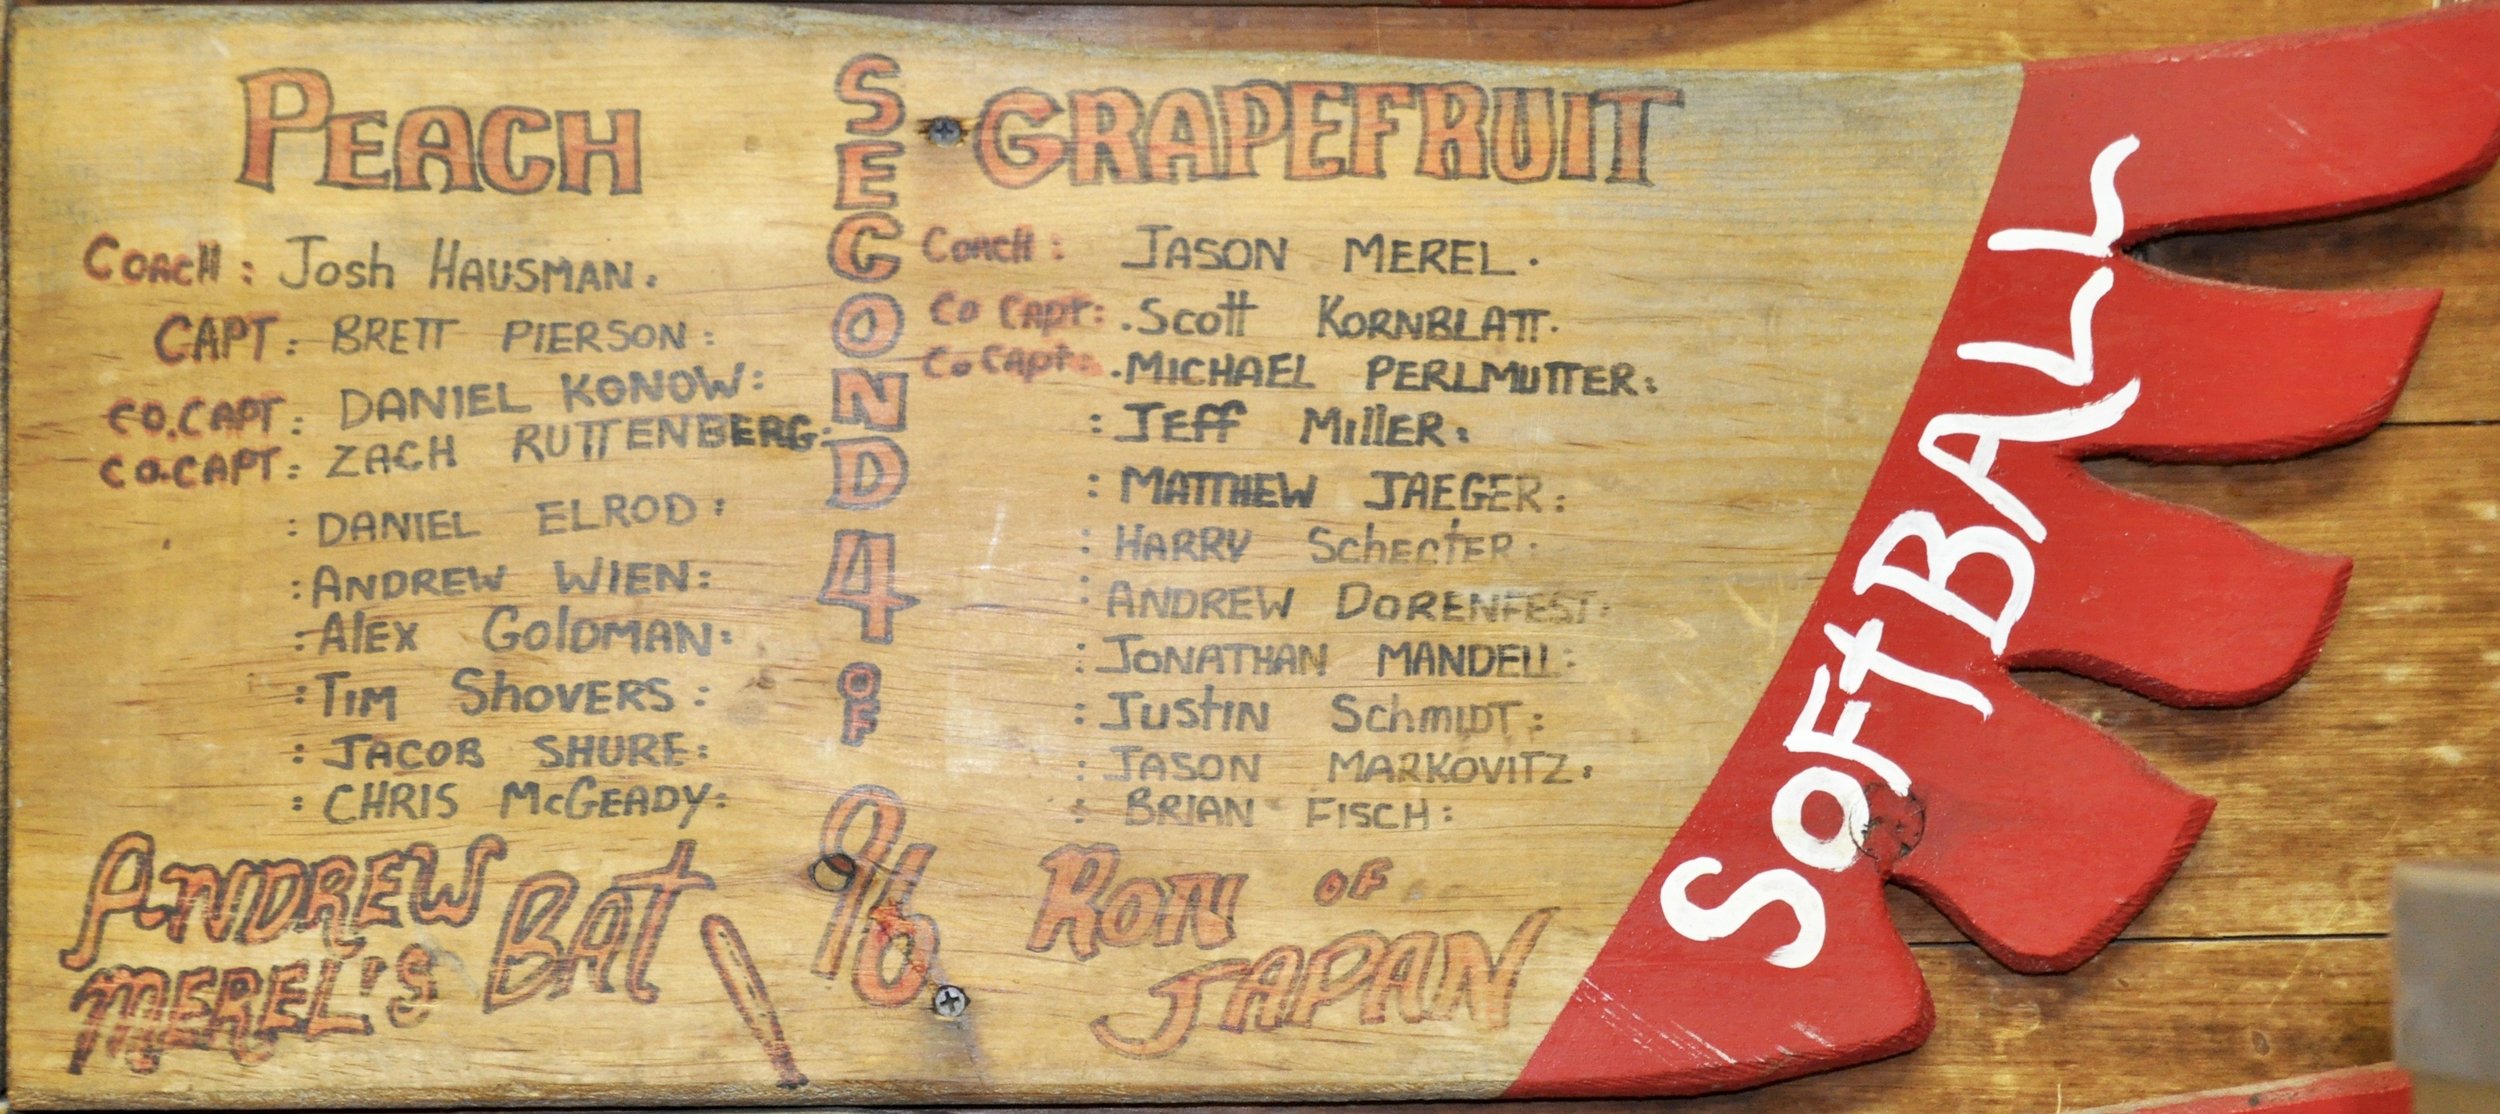 PEACH
COACH: Josh HAUSMAN.
CAPT: BRETT PIERSON:
CO.CAPT: DANIEL KONOW:
CO.CAPT: ZACH RUTTENBERG:
: DANIEL ELROD:
: ANDREW WIEN:
: Alex GolDMAN:
: TIM ShOVERS:
: JACOB SHURE:
: CHRIS McGEADY:
ANDREW
MEREL'S BAT
SECOND 4 OF 96
GRAPEFRUIT
COACH: JASON MEREL.
CO CAPT: .Scott KORNBLATT.
CO CAPT: .MICHAEL PERLMUTTER:
: JEFF MillER:
: MATTHEW JAEGER:
: HARRY SchecTER:
: ANDREW DORENFEST:
: JONATHAN MANDELL:
: JUStIN SchmIDT:
: JASON MARKOVITZ:
: BRIAN FISCH:
RON OF
JAPAN
SOFTBALL